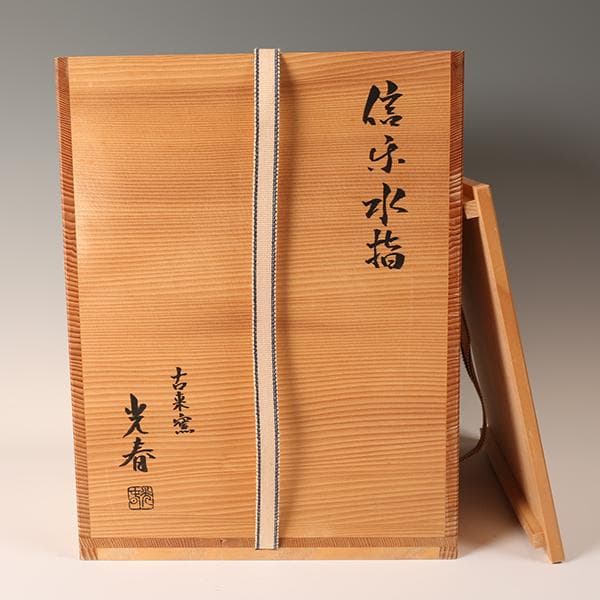 信楽水指
古来窯
光春